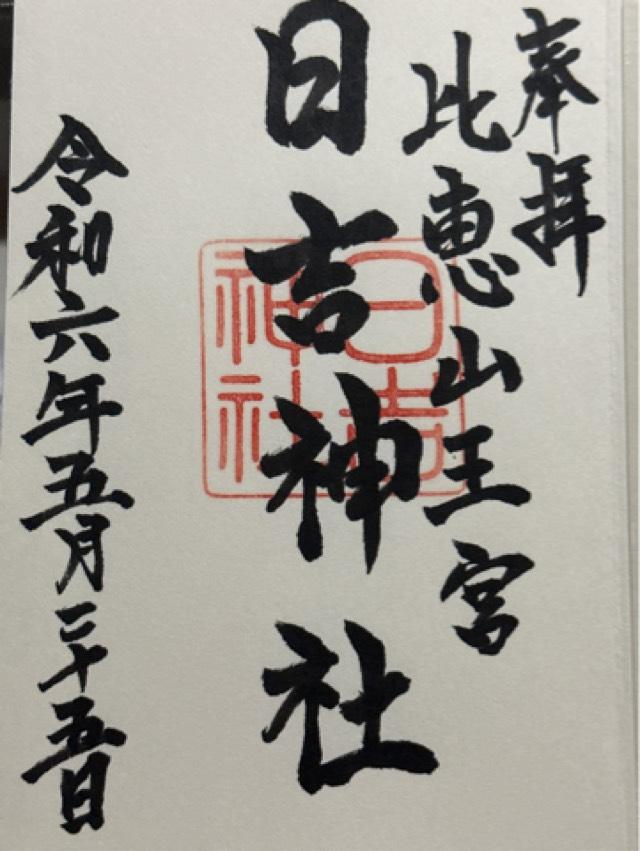 奉拝
比恵山王宮
日吉神社
日吉
神社
令和六年五月二十五日